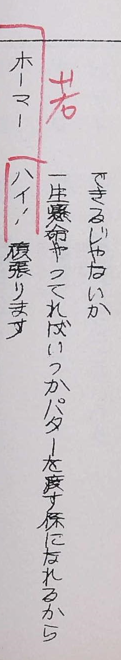 できるじゃないか
若
一生懸命やってればいつかパターを渡す係になれるから
ホーマー ハイ!頑張ります